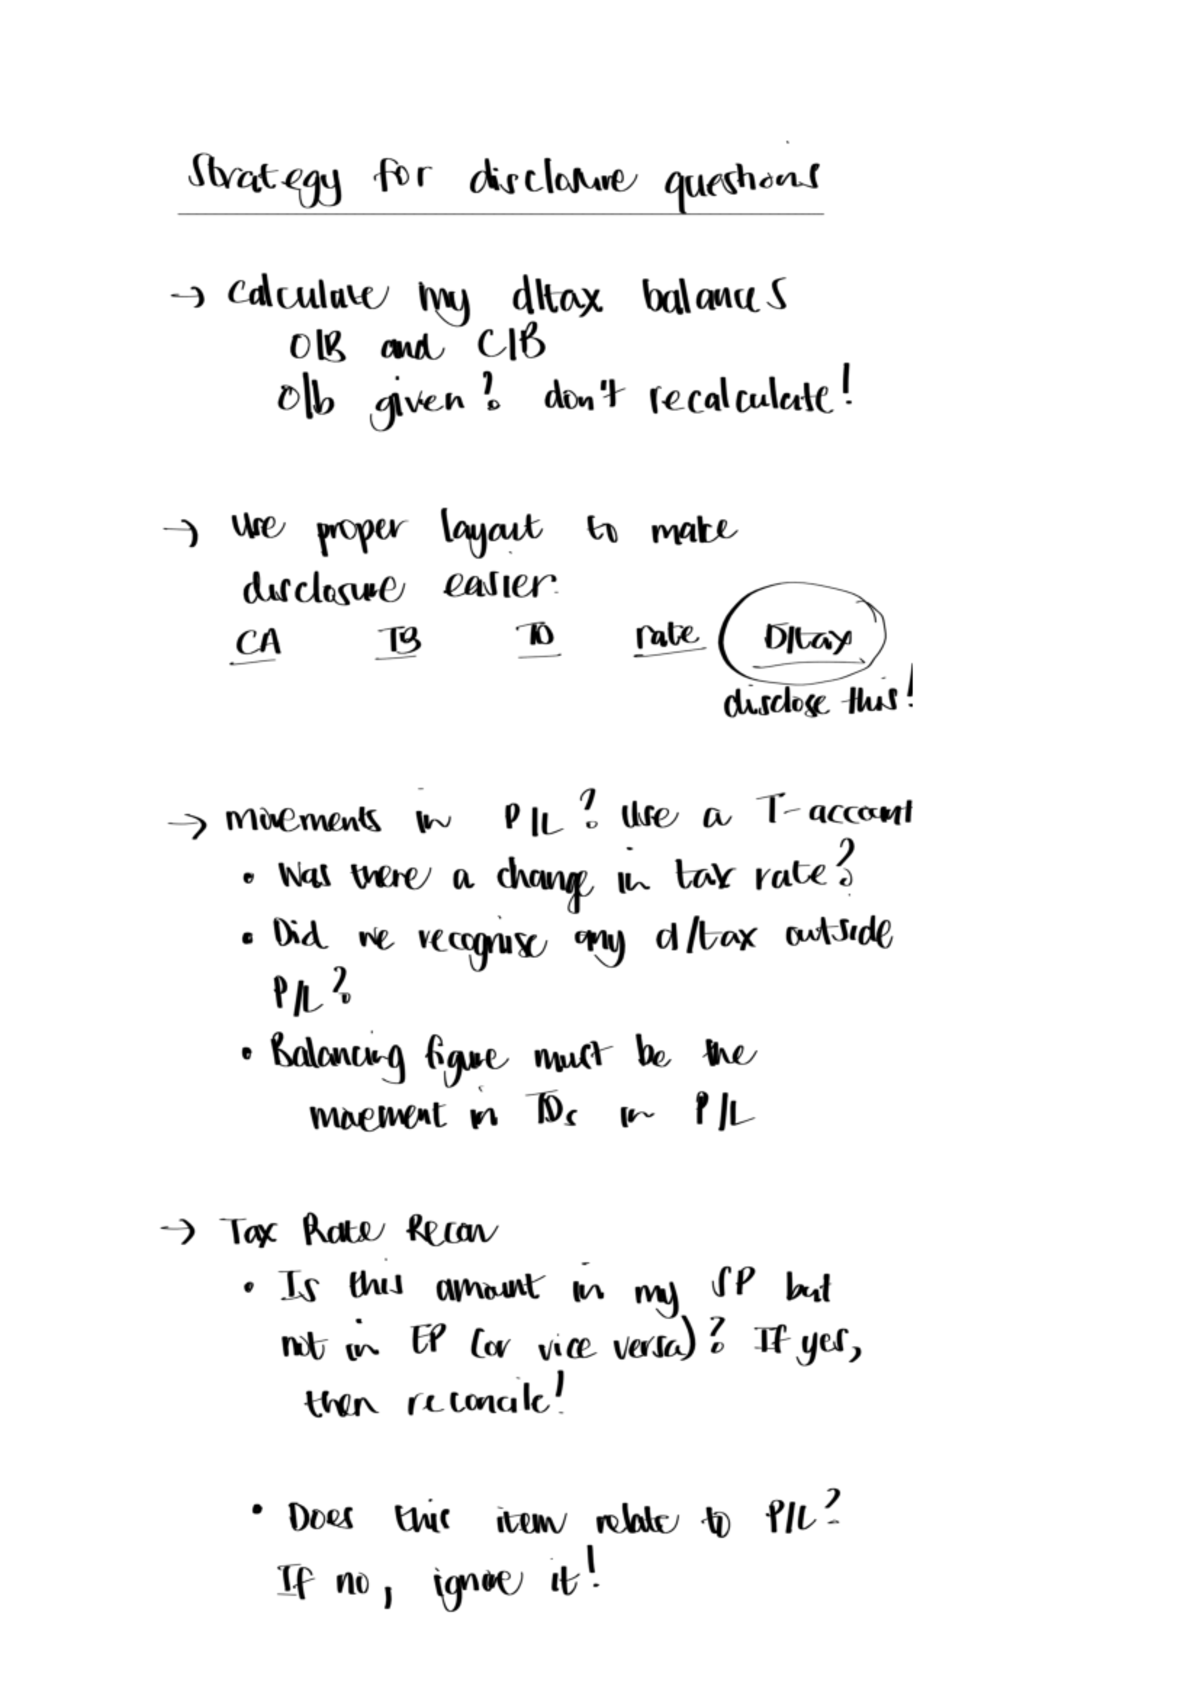 Strategy for disclosure questions
→ Calculate my d/tax balances
O/B and C/B
O/b given? don't recalculate!
→ Use proper layout to make
disclosure easier.
CA TB TD rate D/tax
disclose this!
→ Movements in P/L? Use a T-account
• Was there a change in tax rate?
• Did we recognise any d/tax outside
P/L?
• Balancing figure must be the
movement in TDs in P/L
→ Tax Rate Recon
• Is this amount in my SP but
not in EP (or vice versa)? If yes,
then reconcile!
• Does this item relate to P/L?
If no, ignore it!